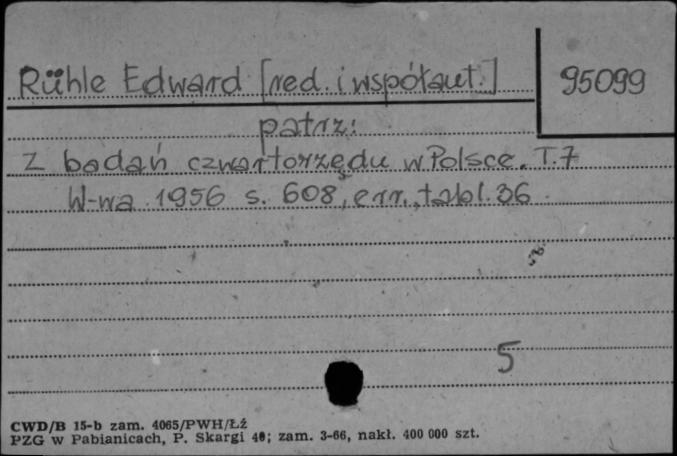 Rühle Edward [red. i współaut.] 95099
patrz:
Z badań czwartorzędu w Polsce. T.7
W-wa 1956 s. 608, err., tabl. 36
5
CWD/B 15-b zam. 4065/PWH/Łź
PZG w Pabianicach, P. Skargi 40; zam. 3-66, nakł. 400 000 szt.